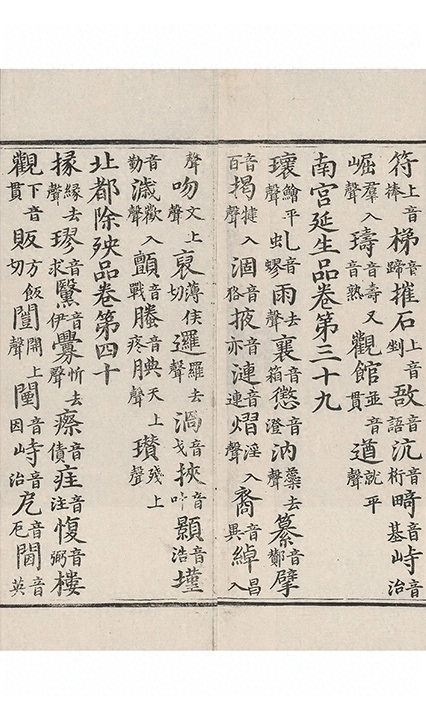 符上音捧梯音蹄摧石上音剉敔音語沆音桁畸音基峙音治
崛羣入聲璹音壽又音熟觀館並音貫遒就平聲
南宮延生品卷第三十九
瓌繪平聲虬音蟉雨去聲襄音箱懲音澄汭蘂去聲纂音鄼擘
音百揭揵入聲涸音狢掖音亦漣音連熠淫入聲裔音異綽昌入
聲吻文上聲裒薄侯切邏羅去聲渦音戈挾音叶顥音浩墐
音勤濊歡入聲顫音戰螣音疼腆天上聲瓚殘上聲
北都除殃品卷第四十
掾緣去聲璆音求鷖音伊釁忻去聲瘵音債疰音注愎音弼樓
觀下音貫販方飯切闓開上聲闉音因峙音治音英